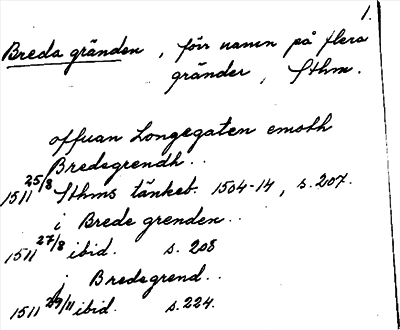 1.
Breda gränden, förr namn på flera
gränder, Sthm.
offuan Longegaten emoth
Bredegrendh..
1511 25/8 Sthms tänkeb. 1504-14, s. 207.
i Brede grenden..
1511 27/8 ibid. s. 208
i Bredegrend..
1511 29/11 ibid. s. 224.